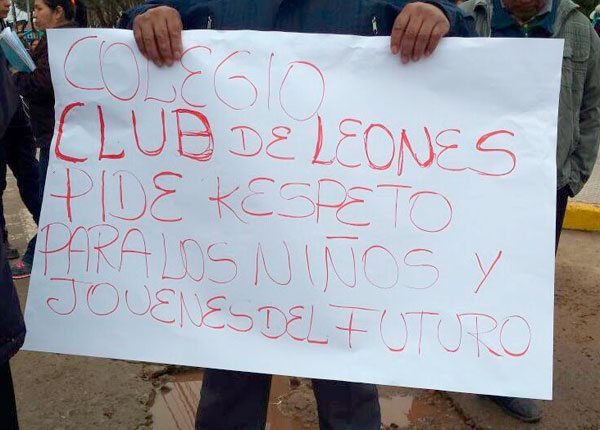 COLEGIO
CLUB DE LEONES
PIDE RESPETO
PARA LOS NIÑOS Y
JOVENES DEL FUTURO